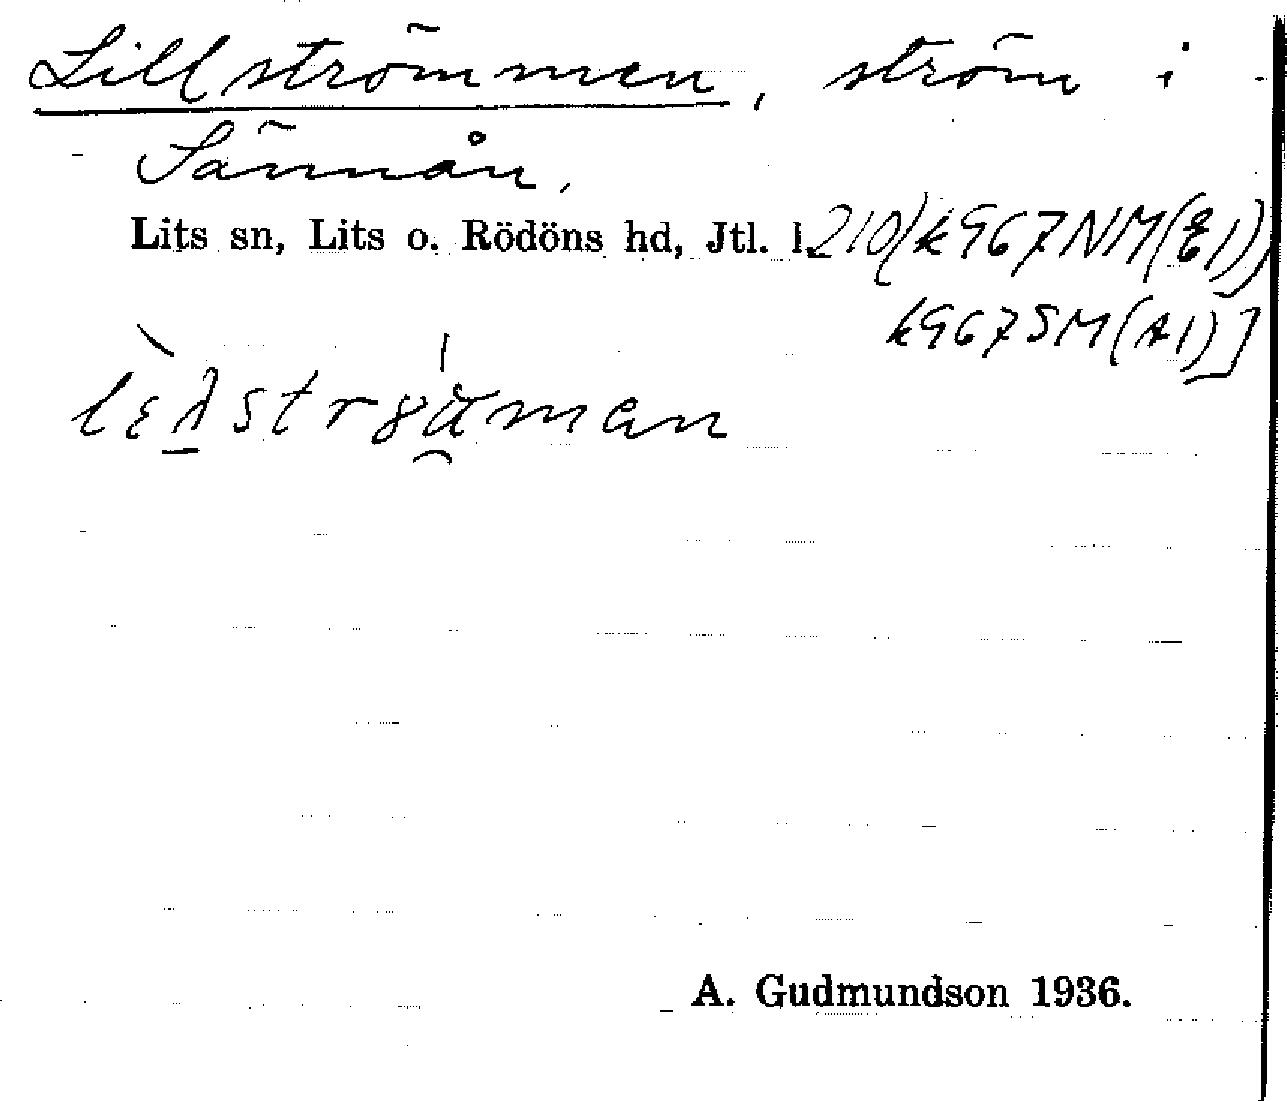 Lillströmmen, ström i
Sännån,
Lits sn, Lits o. Rödöns hd, Jtl. l.210/k967NM(E1),
k967SM(A1)]
A. Gudmundson 1936.